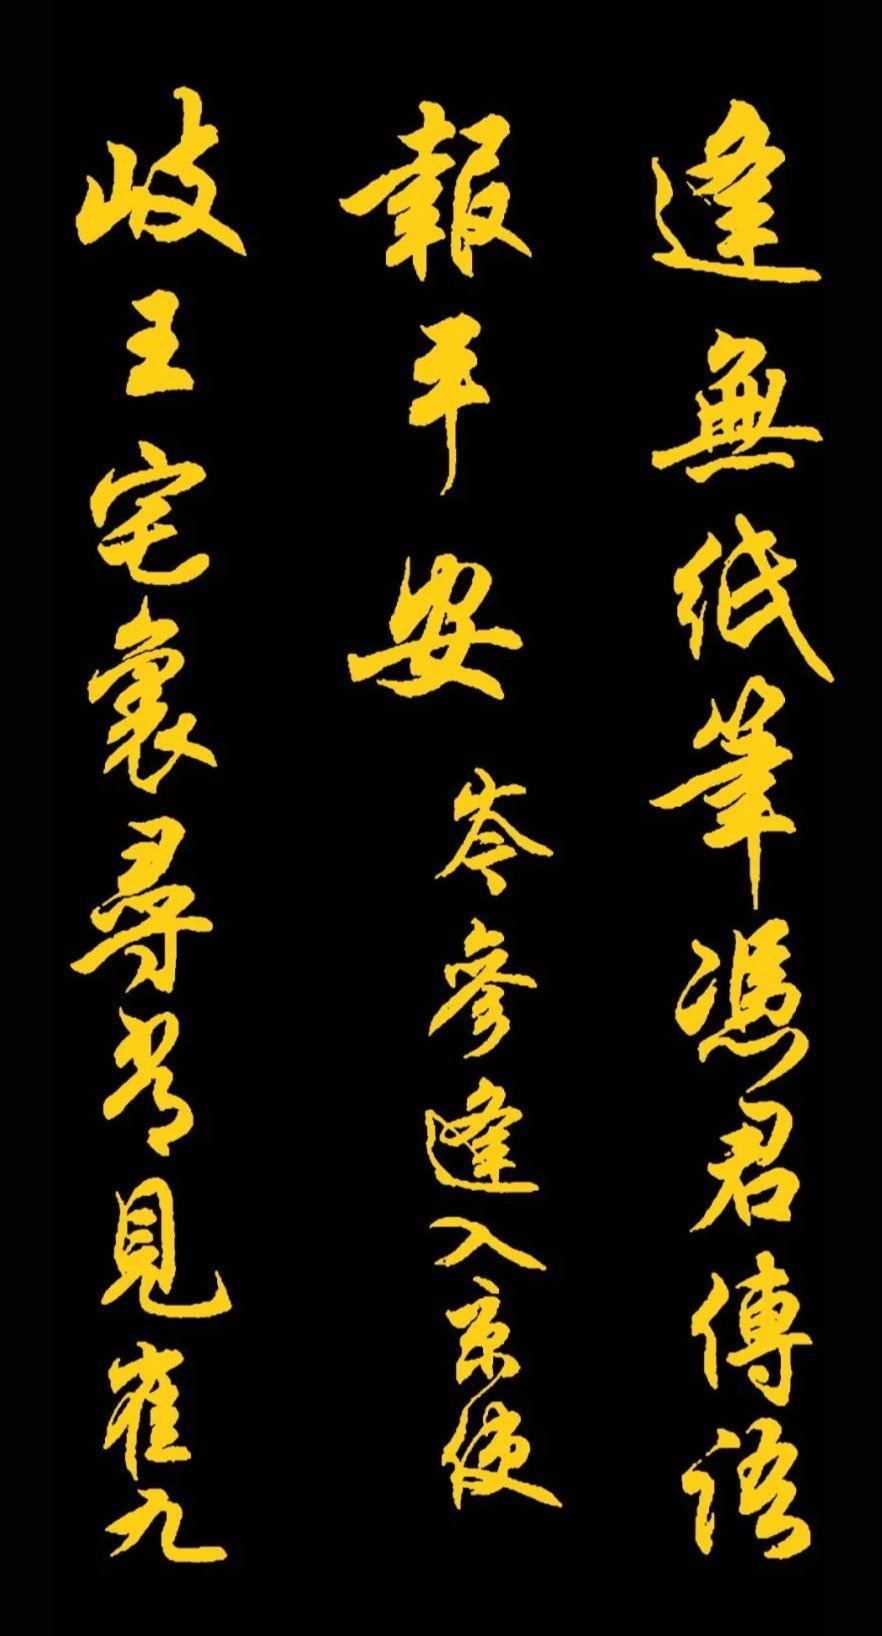 逢無紙筆憑君傳語
報平安 岑參逢入京使
岐王宅裏尋常見崔九